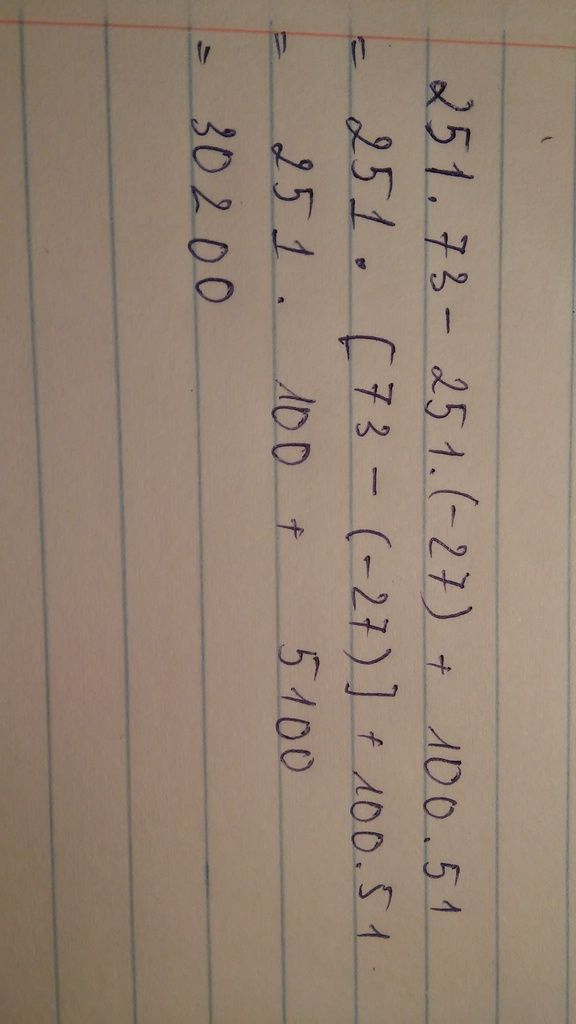 251.73 - 251.(-27) + 100.51
= 251. [73 - (-27)] + 100.51
= 251. 100 + 5100
= 30200